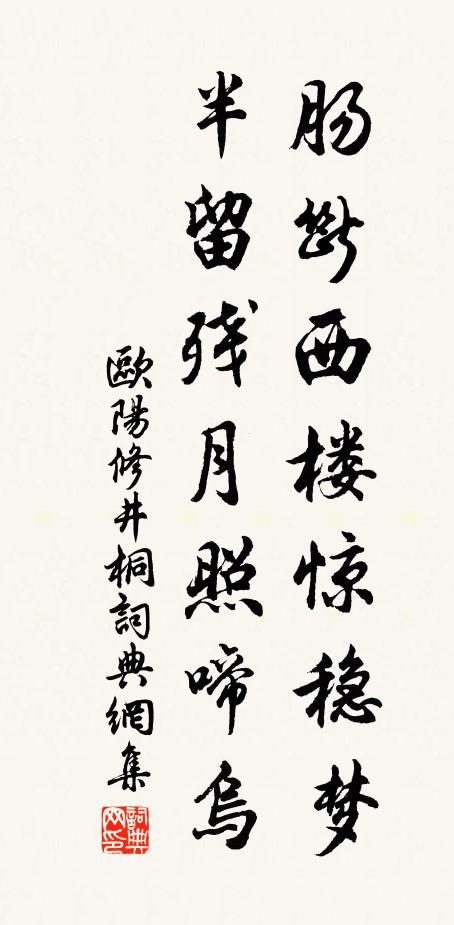 肠断西楼惊稳梦
半留残月照啼乌
歐陽修井桐詞典網集
詞典网印